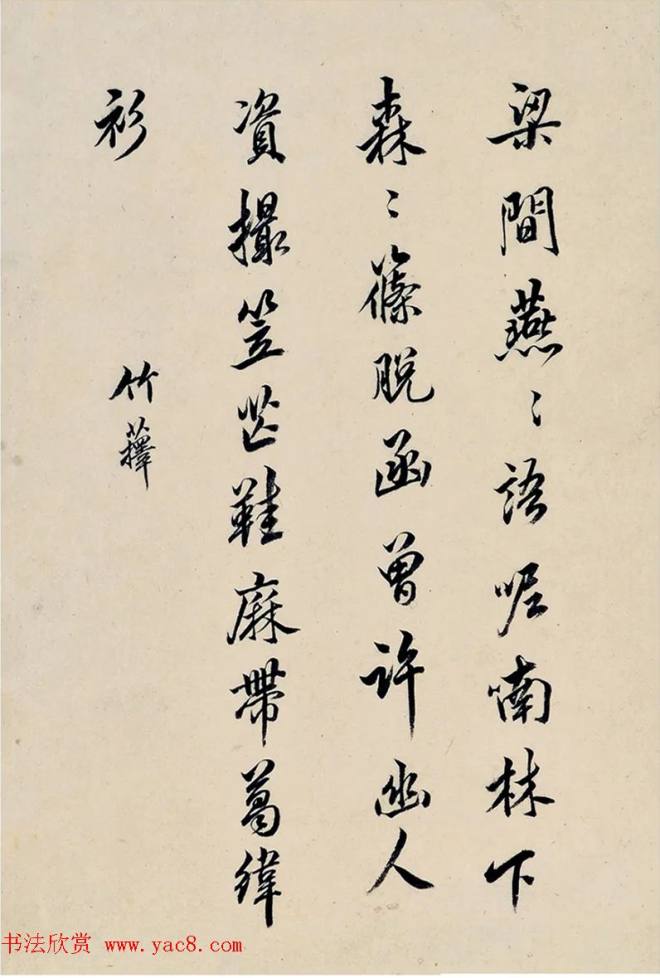 梁間燕〻語呢喃林下
森〻篠脫函曽許幽人
資撮笠芒鞋麻帶葛緯
衫
竹蘀
书法欣赏 www.yac8.com